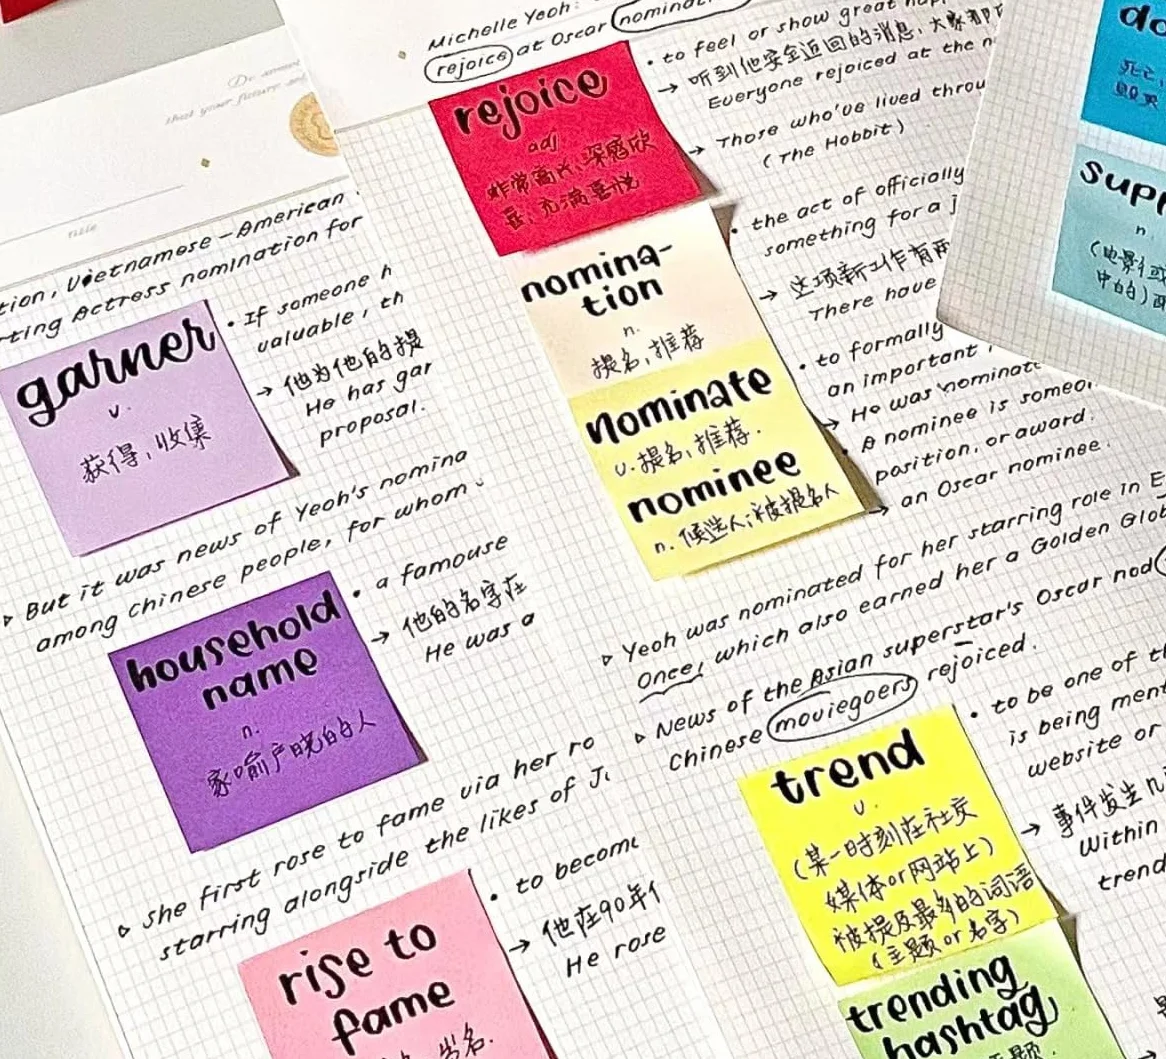 De
that your future
title
tion, Vietnamese-American
rting Actress nomination for
garner
v.
获得,收集
• If someone h
valuable, th
→ 他为他的提
He has gar
proposal.
▹ But it was news of Yeoh's nomina
among Chinese people, for whom
household
name
n.
家喻户晓的人
• a famouse
→ 他的名字在
He was a
▹ She first rose to fame via her ro
starring alongside the likes of J
rise to
fame
出名.
• to become
→ 他在90年代
He rose
Michelle Yeoh:
rejoice at Oscar nomina
rejoice
adj
非常高兴,深感欣
喜,充满喜悦
• to feel or show great hap
→ 听到他安全返回的消息,大家都
Everyone rejoiced at the n
→ Those who've lived throu
(The Hobbit)
nomina-
tion
n.
提名,推荐
• the act of officially
something for a j
→ 这项新工作有两
There have
nominate
v. 提名,推荐.
nominee
n. 候选人;被提名人
• to formally
an important
→ He was nominate
• A nominee is someon
position, or award.
→ an Oscar nominee.
▹ Yeoh was nominated for her starring role in E
Once, which also earned her a Golden Glob
▹ News of the Asian superstar's Oscar nod
Chinese moviegoers rejoiced.
trend
v.
(某一时刻在社交
媒体or网站上)
被提及最多的词语
(主题or名字)
• to be one of th
is being ment
website or
→ 事件发生
Within
trend
trending
hashtag
题.
do
死亡,
毁灭
supp
n.
(电影或
中的)配